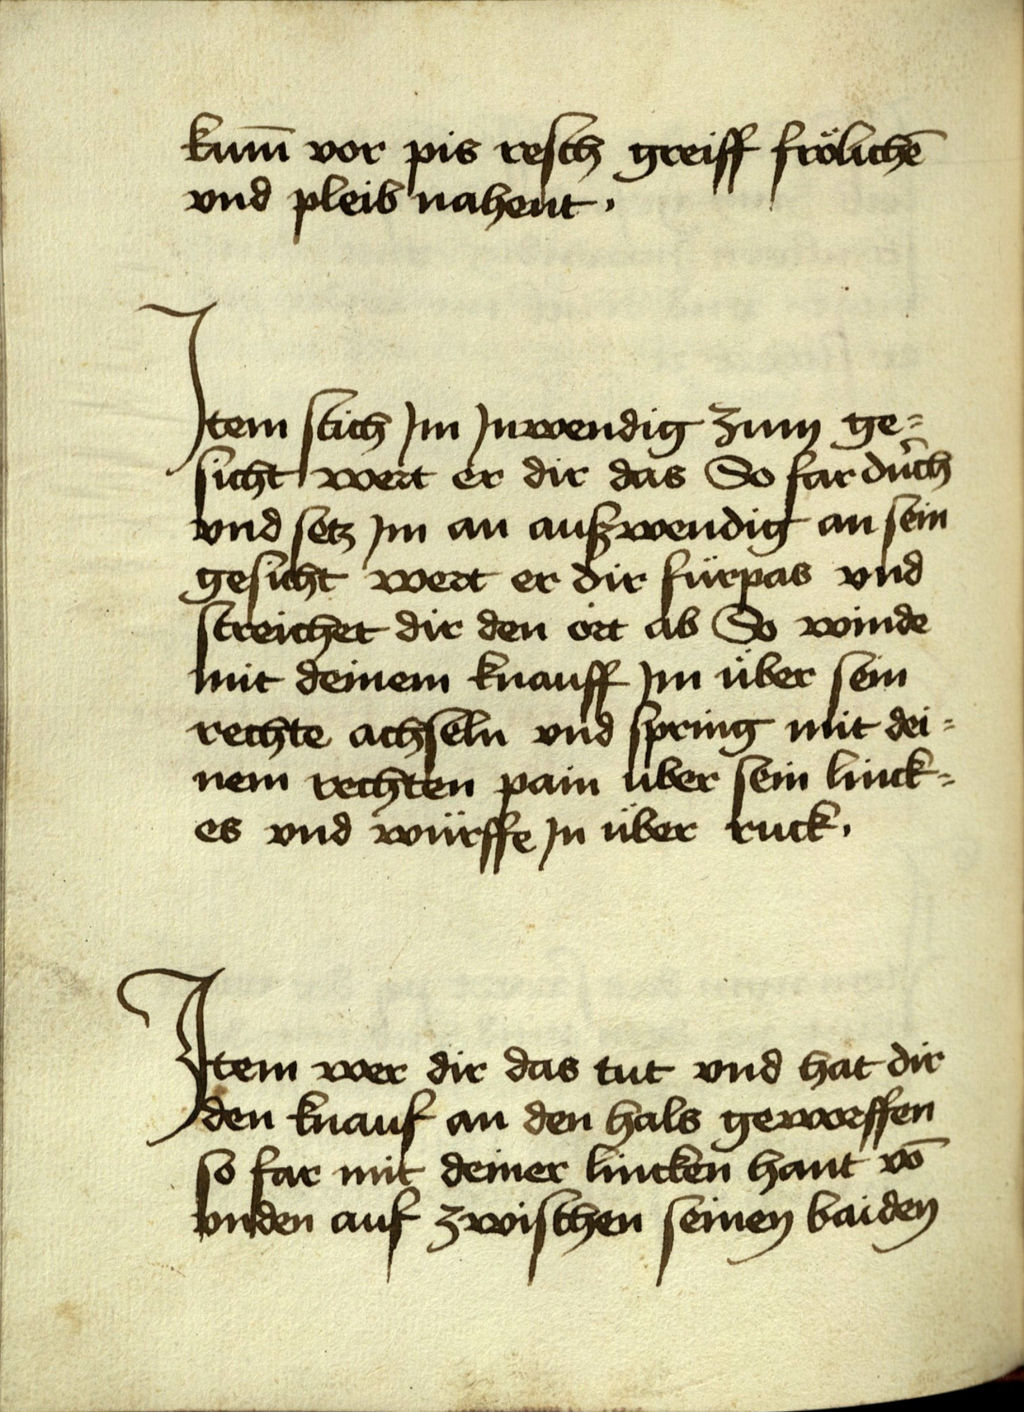 kum̄ vor pis resch greiff frölichē
vnd pleib nahent .
Item stich Im Inwendig zum ge=
sicht wert er dir das So far durch
vnd setz Im an außwendig an sein
gesicht wert er dir fürpas vnd
streichet dir den ort ab So winde
mit deinem knauff Im über sein
rechte achseln vnd spring mit dei=
nem rechten pain über sein linck=
es vnd würffe In über ruck .
Item wer dir das tut vnd hat dir
den knauf an den hals geworffen
so far mit deiner lincken hant vō
vnden auf zwischen seinen baiden